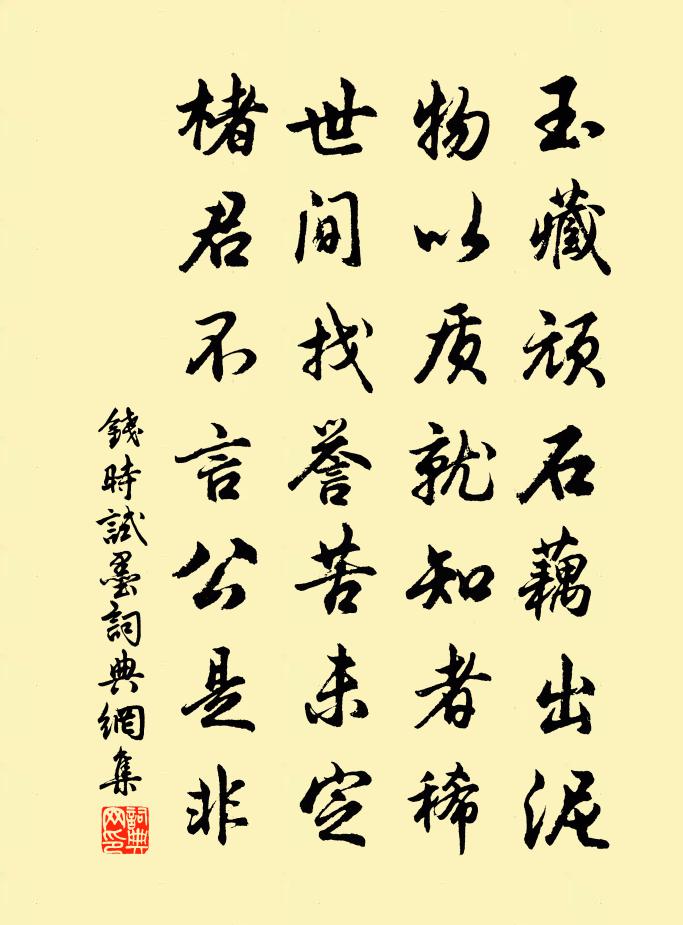 玉藏顽石藕出泥
物以质就知者稀
世间找誉苦未定
楮君不言公是非
錢時試墨詞典網集
詞典网印